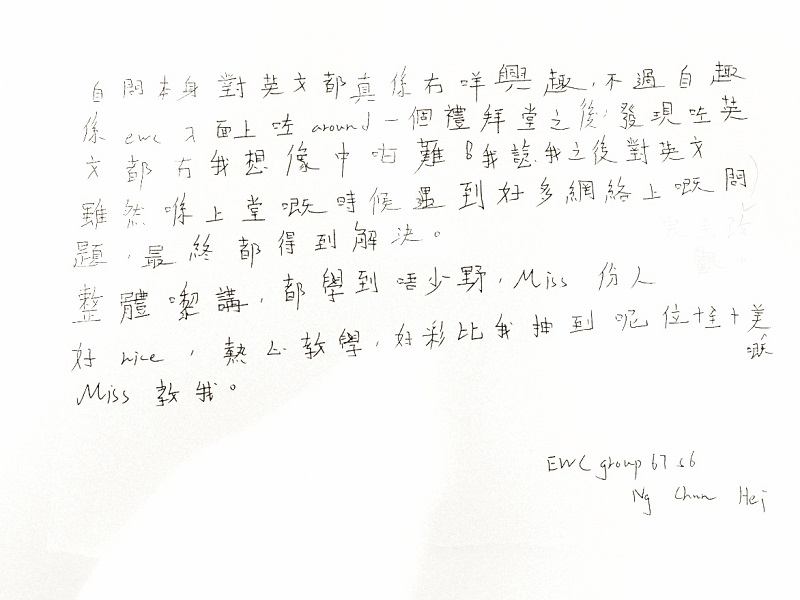 自問本身對英文都真係冇咩興趣，不過自趣
係 ewc 入面上咗 around 一個禮拜堂之後，發現咗英
文都冇我想像中咁難，我諗我之後對英文
雖然喺上堂嘅時候遇到好多網絡上嘅問
題，最終都得到解決。
整體嚟講，都學到唔少野，Miss 份人
好 nice，熱心教學，好彩比我抽到呢位十全十美
嘅
Miss 教我。
EWC group 67 s6
Ng Chun Hei